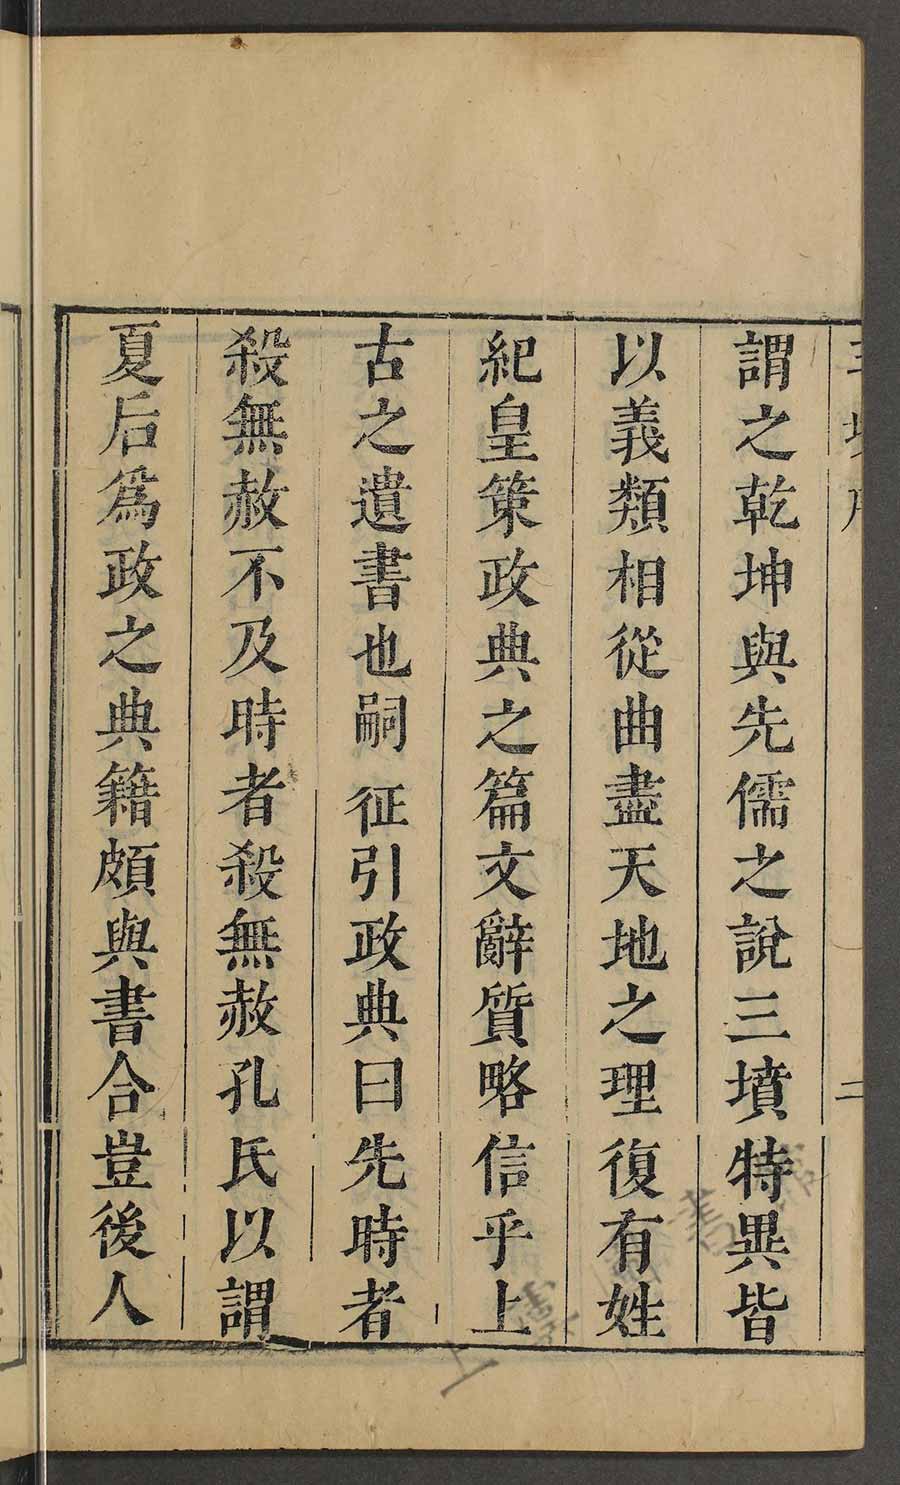 謂之乾坤與先儒之說三墳特異皆
以義類相從曲盡天地之理復有姓
紀皇策政典之篇文辭質略信乎上
古之遺書也嗣征引政典曰先時者
殺無赦不及時者殺無赦孔氏以謂
夏后爲政之典籍頗與書合豈後人